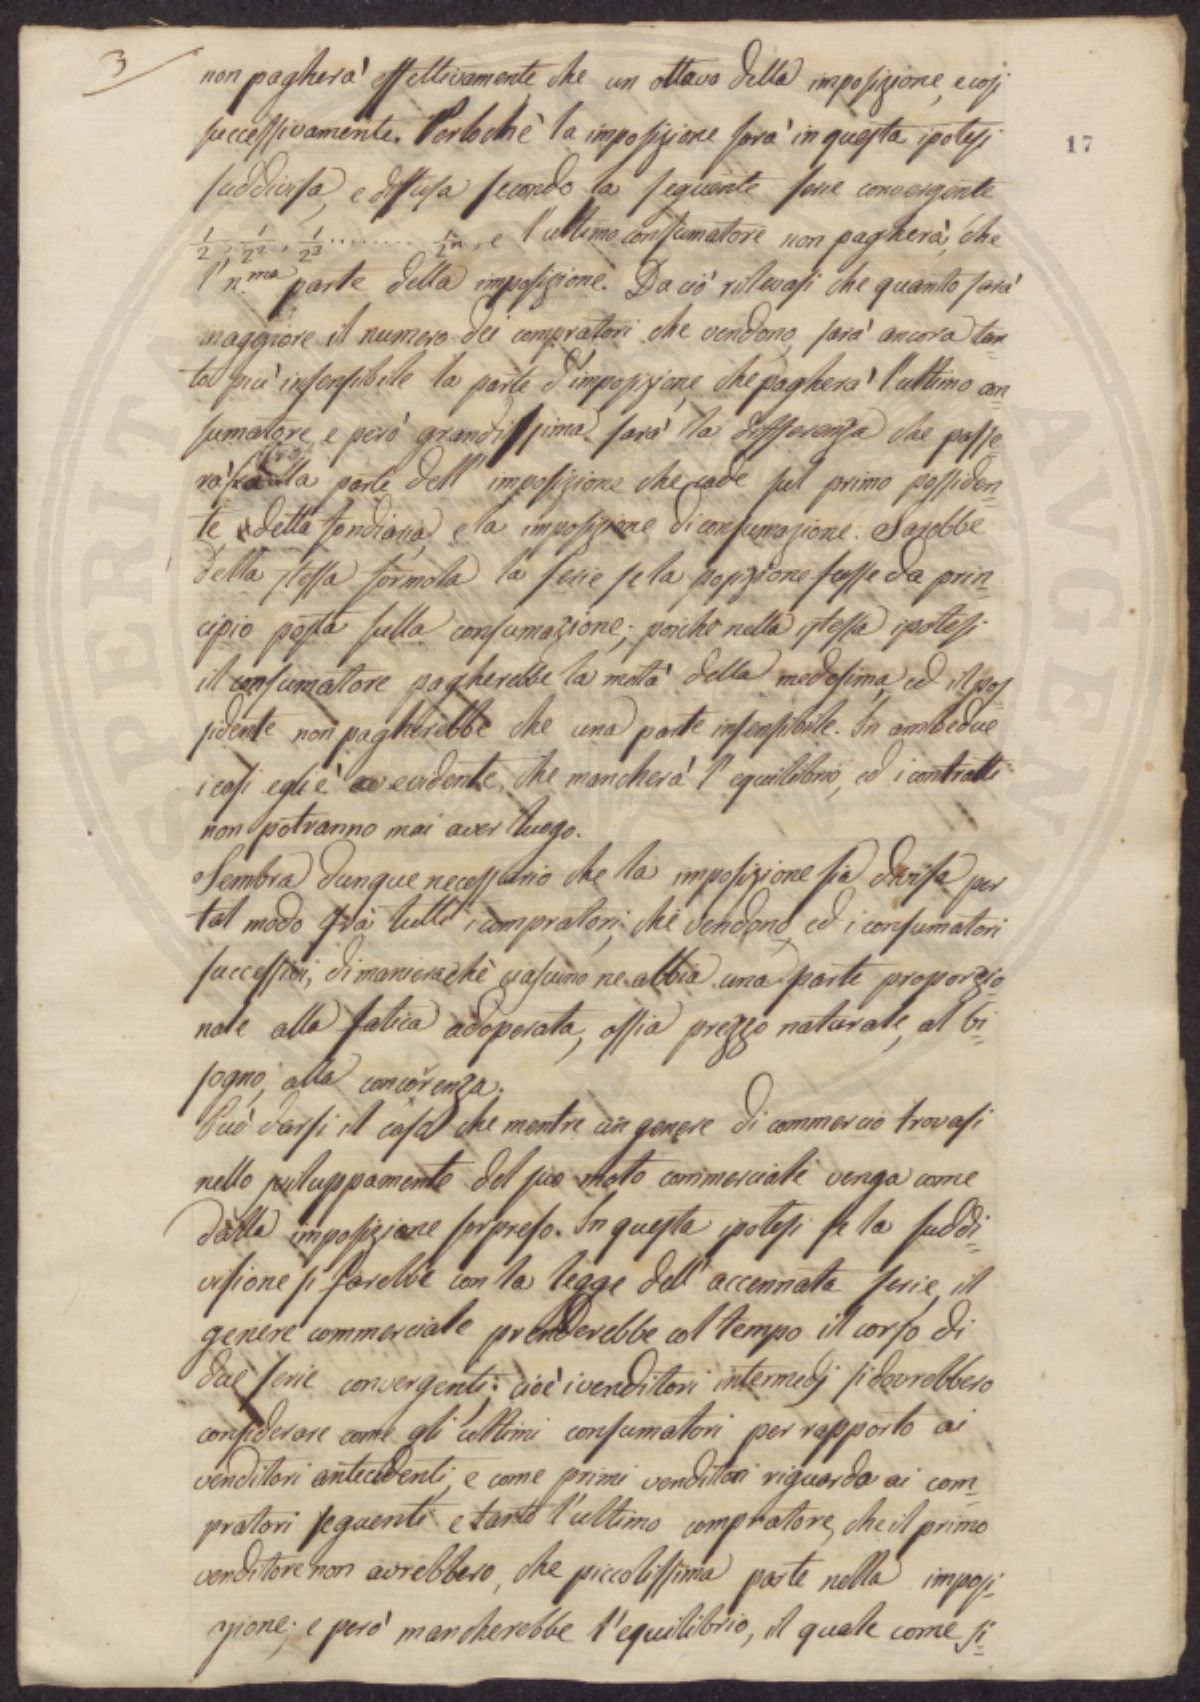 3
17
non pagherà effettivamente che un ottavo della imposizione, e così
successivamente. Perlochè la imposizione sarà in questa ipotesi
suddivisa, e diffusa secondo la seguente serie convergente
1/2, 1/2², 1/2³ ........ 1/2ⁿ, e l'ultimo consumatore non pagherà, che
l'n.ma parte della imposizione. Da ciò rilevasi che quanto sarà
maggiore il numero dei compratori che vendono, sarà ancora tan=
to più insensibile la parte d'imposizione, che pagherà l'ultimo con
sumatore, e però grandissima sarà la differenza che passe=
rà fra la parte dell'imposizione che cade sul primo possiden=
te, detta fondiaria, e la imposizione di consumazione. Sarebbe
della stessa formola la serie se la posizione fosse da prin=
cipio posta sulla consumazione; poichè nella istessa ipotesi
il consumatore pagherebbe la metà della medesima, ed il pos=
sidente non pagherebbe che una parte insensibile. In ambedue
i casi egli è evidente, che mancherà l'equilibrio, ed i contratti
non potranno mai aver luogo.
Sembra dunque necessario che la imposizione sia divisa per
tal modo frà tutti i compratori, che vendono, ed i consumatori
successivi, di maniera chè ciascuno ne abbia una parte proporzio
nale alla fatica adoperata, ossia prezzo naturale, al bi=
sogno, alla concorrenza.
Può darsi il caso che mentre un genere di commercio trovasi
nello sviluppamento del suo moto commerciale venga come
dalla imposizione sorpreso. In questa ipotesi se la suddi=
visione si farebbe con la legge dell'accennata serie, il
genere commerciale prenderebbe col tempo il corso di
due serie convergenti; cioè i venditori intermedj si dovrebbero
considerare come gli ultimi consumatori per rapporto ai
venditori antecedenti, e come primi venditori riguardo ai com=
pratori seguenti e tanto l'ultimo compratore, che il primo
venditore non avrebbero, che piccolissima parte nella imposi=
zione; e però mancherebbe l'equilibrio, il quale come si=